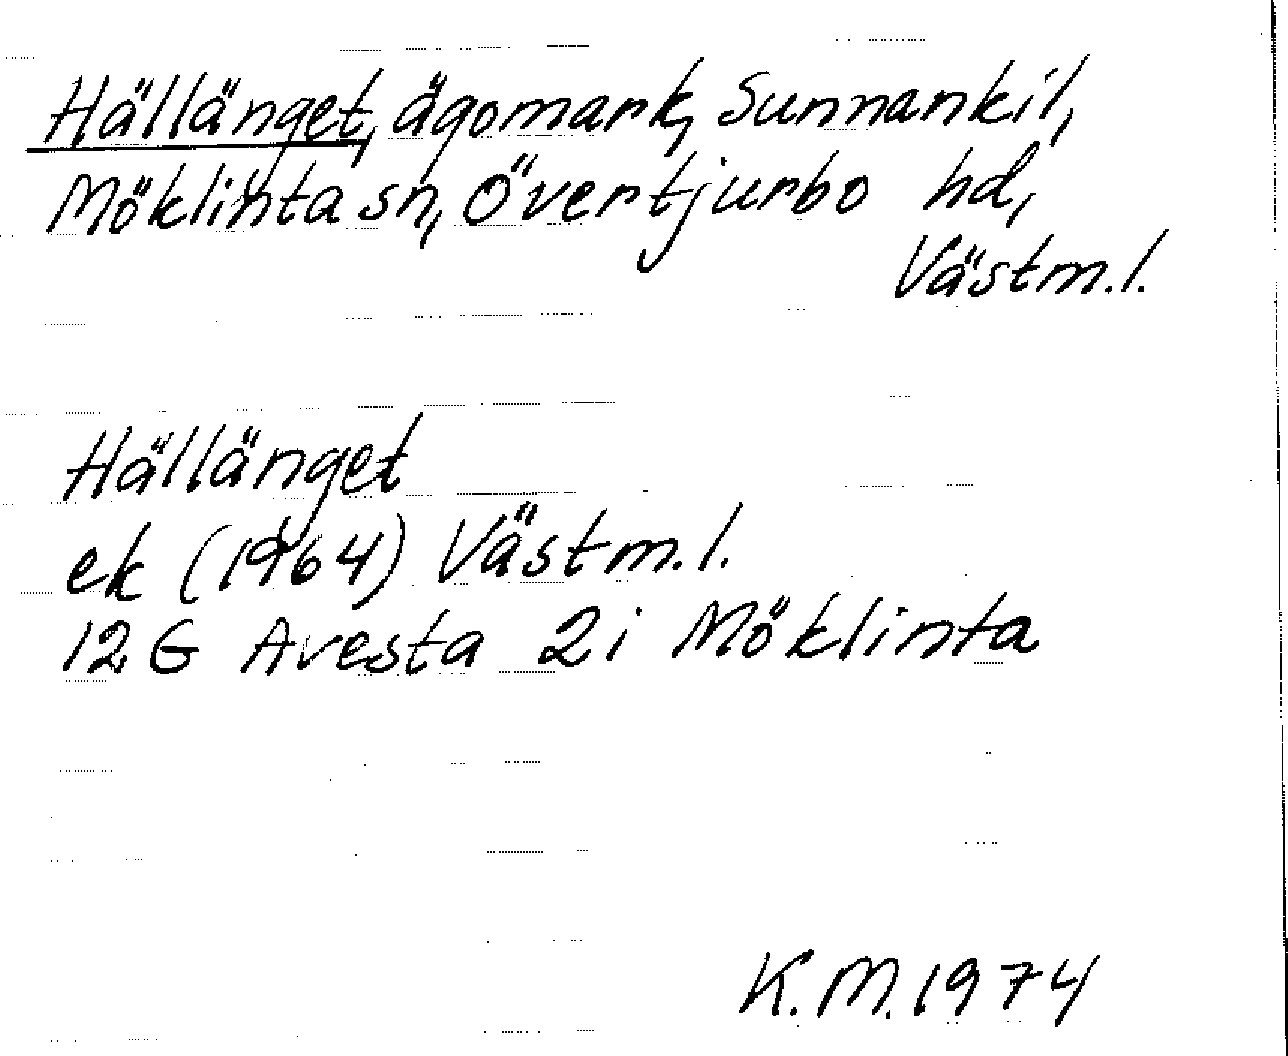 Hällänget, ägomark, Sunnankil,
Möklinta sn, Övertjurbo hd,
Västm.l.
Hällänget
ek (1964) Västm.l.
12 G Avesta 2i Möklinta
K.M. 1974